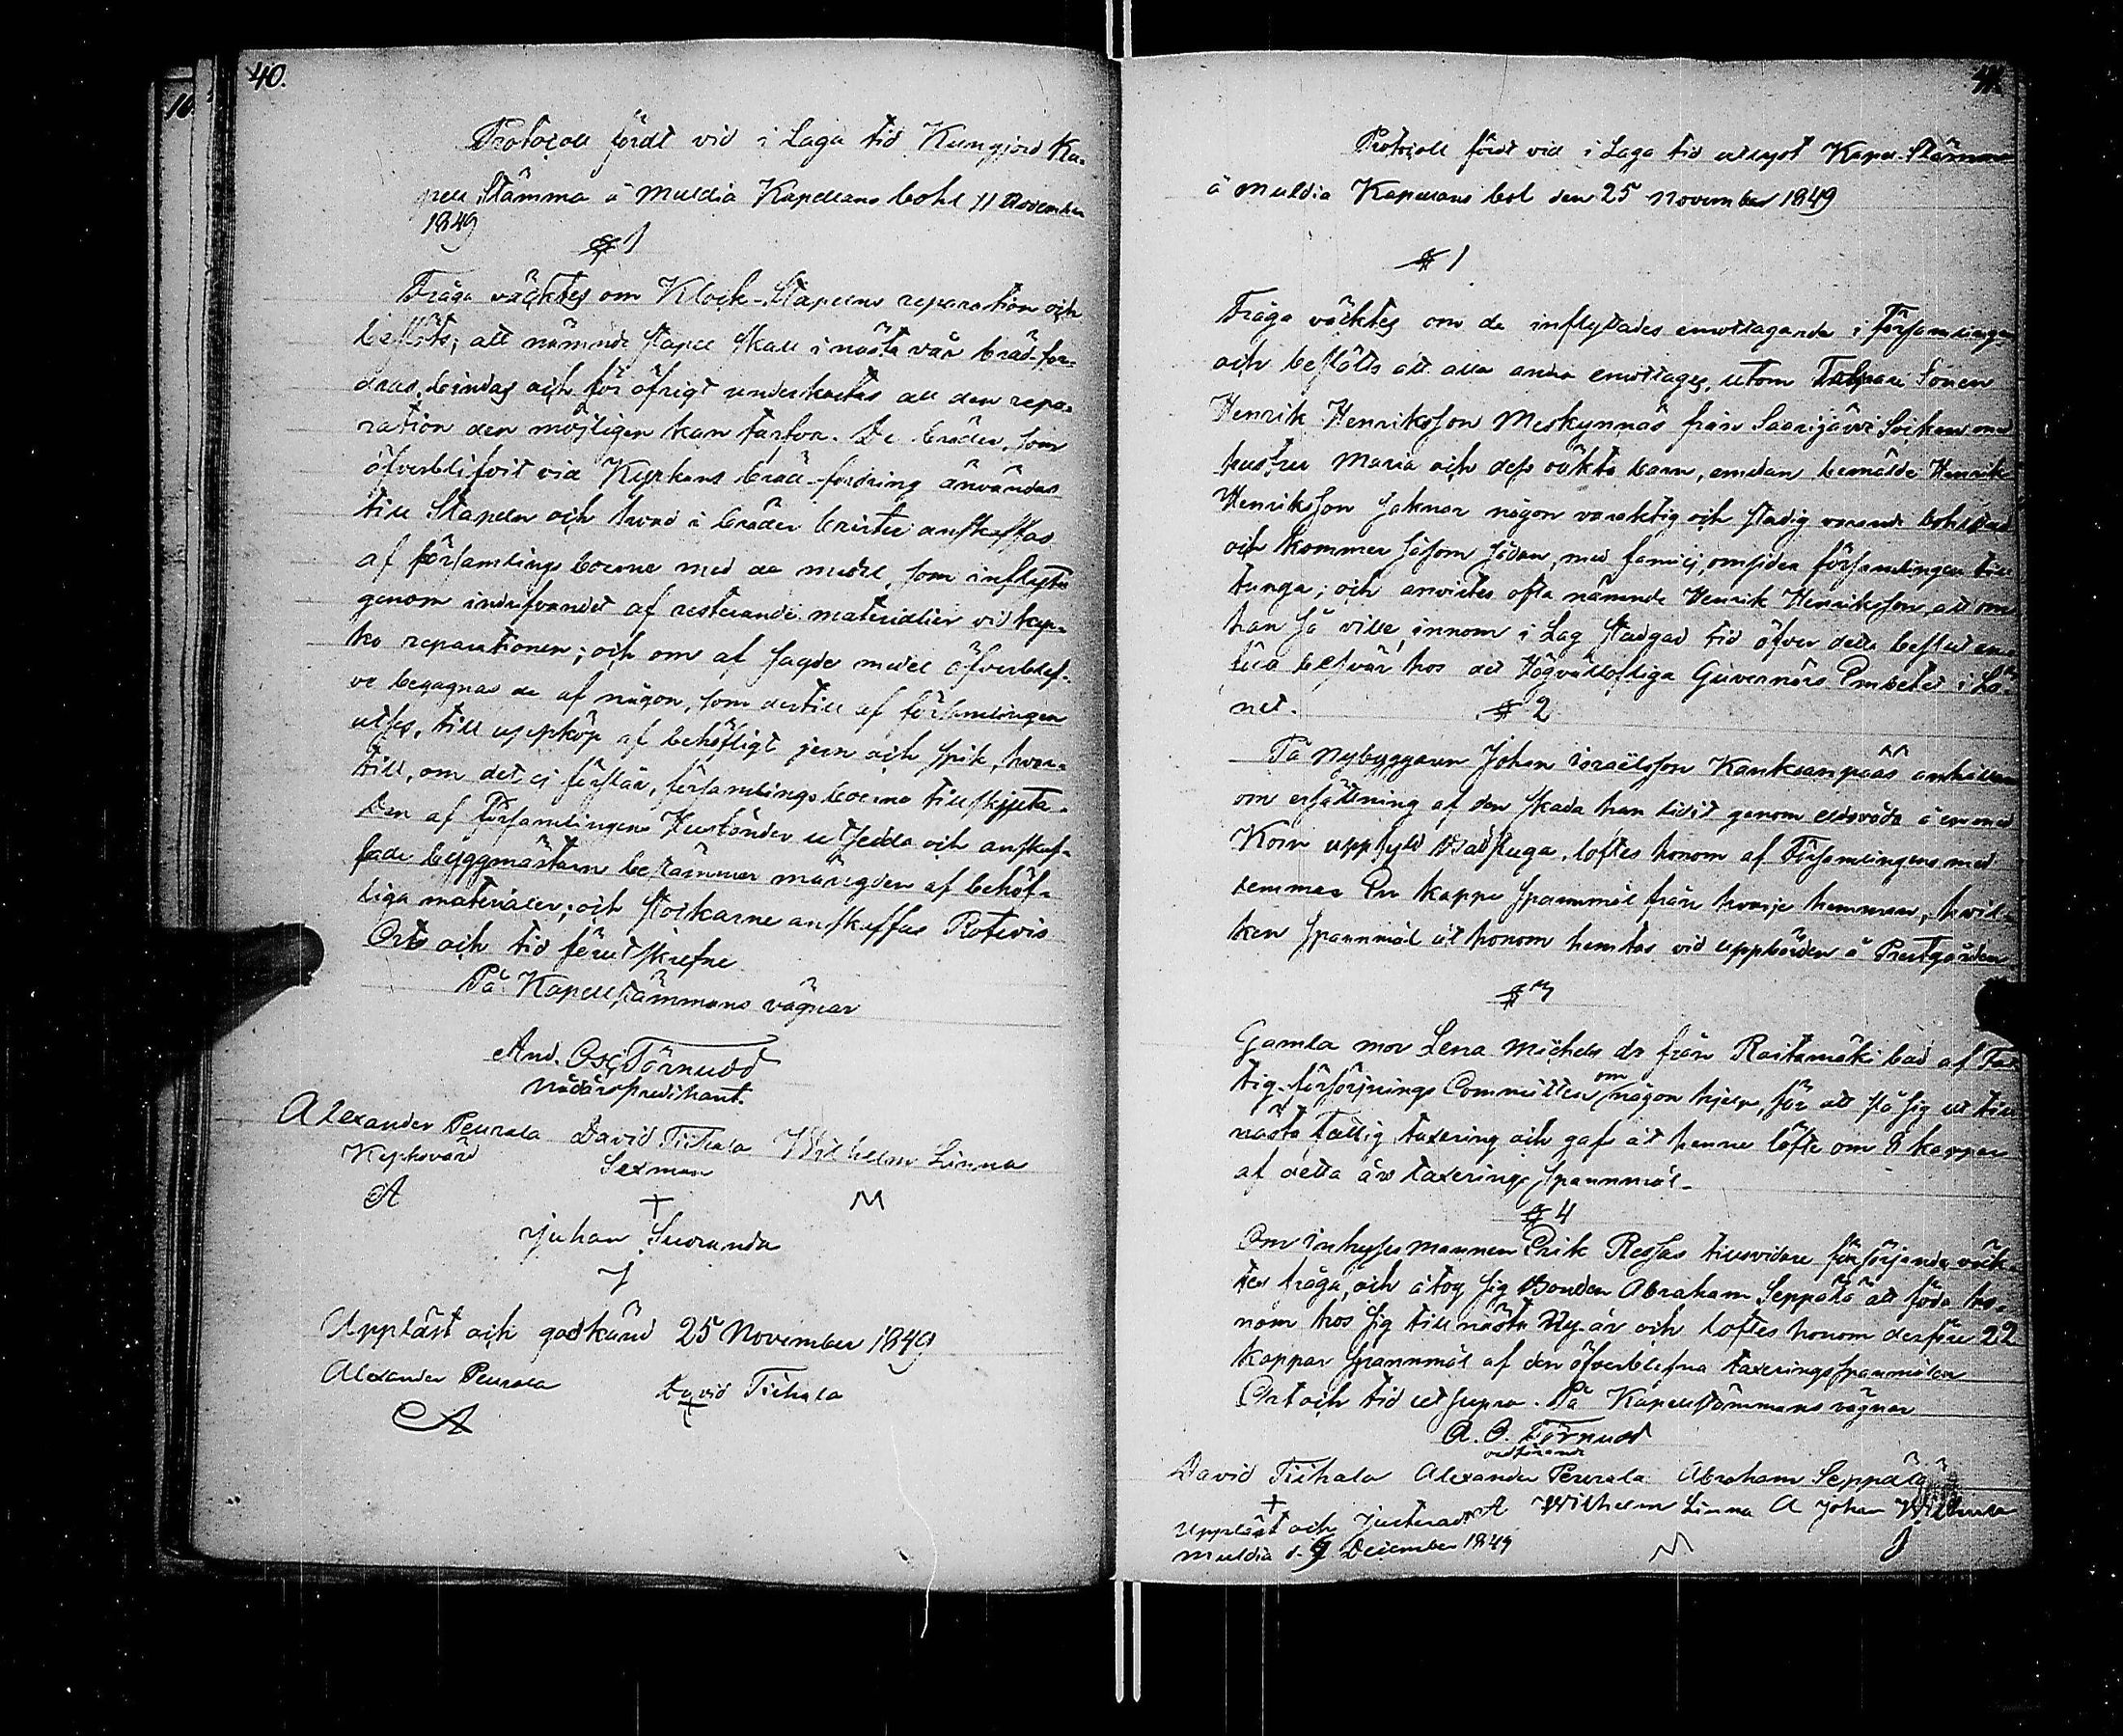 40.
Protocoll fördt vid i Laga tid Kungjord Ka-
pell Stämma å Muldia Kapellans bohl 11 November
1849
§ 1
Fråga väcktes om Klock-Stapelns reparation och
beslöts; att nämnde stapel skall i nästa vår bräd-for-
dras, bindas och för öfrigt underkastas all den repa-
ration den möjligen kan tarfva. De bräder, som
öfverblifvit vid Kyrkans bräd-fordring användas
till Stapeln och hvad i bräder brister anskaffas
af församlingsboerne med de medel, som inflyta
genom indrifvandet af resterande materialier vid kyr-
ko reparationen; och om af sagde medel öfverblef-
ve begagnas de af någon, som dertill af församlingen
utses, till uppköp af behöfligt jern och spik, hvar-
till, om det ej förslår, församlingsboerne tillskjuta.
Den af Församlingens Husbönder utsedda och anskaf-
fade byggmästaren bestämmer mängden af behöf-
liga materialer; och stockarne anskaffas Rotevis
Orts och tid förutskrefne
På Kapellstämmans vägnar
And. Osc. Törnudd
Nådårspredikant.
Alexander Peurala David Tiihala Wilhelm Linna
Kyrkovärd Sexman
A + M
Juhan Suoranda
J
Uppläst och godkänd 25 November 1849
Alexander Peurala David Tiihala
A +
41.
Protocoll fördt vid i Laga tid utlyst Kapell-Stämma
å Muldia Kapellans bol den 25 November 1849
§ 1
Fråga väcktes om de inflyttades emottagande i Församlingen
och beslöts att alla andra emottages, utom Sonen
Henrik Henriksson Meskynnäs från Saarijärvi Socken med
hustru Maria och dess oäkta barn, emedan bemälde Henrik
Henriksson saknar någon varaktig och stadig varande
och kommer såsom sådan, med familj, omsider församlingen till
tunga; och anvistes ofta nämnde Henrik Henriksson, att om
han så ville, innom i Lag stadgad tid öfver detta beslut
besvär hos det Högvällofliga Guvernörs Embetet i Lä-
net.
§ 2
På Nybyggaren Johan Israelsson Kankaanpääs anhållan
om ersättning af den skada han lidit genom eldsvåda å en med
Korn uppfyld Badstuga, loftes honom af Församlingens med-
lemmar En kappe spannmål från hvarje hemman, hvil-
ken spannmål åt honom hemtas vid uppbörden å Prestgården
§ 3
Gamla mor Lena Michels dr från Raitamäki bad af Fat-
tig-försörjnings Committen om någon hjelp, för att slå sig ut till
nästa Fattig taxering och gafs åt henne löfte om 8 kappar
af detta års taxerings spannmål.
§ 4
Om Inhysesmannen Erik Ressas tillsvidare försörjande väck-
tes fråga, och åtog sig Bonden Abraham Seppälä att föda ho-
nom hos sig till nästa Ny-år och loftes honom derföre 22
kappar spannmål af den öfverblefna taxeringsspannmålen
Ort och tid ut supra. På Kapellstämmans vägnar
A. O. Törnudd
ordförande
David Tiihala Alexander Peurala Abraham Seppälä
+ A Wilhelm Linna A Johan
Uppläst och Justerad
Muldia d. 9 December 1849 M J